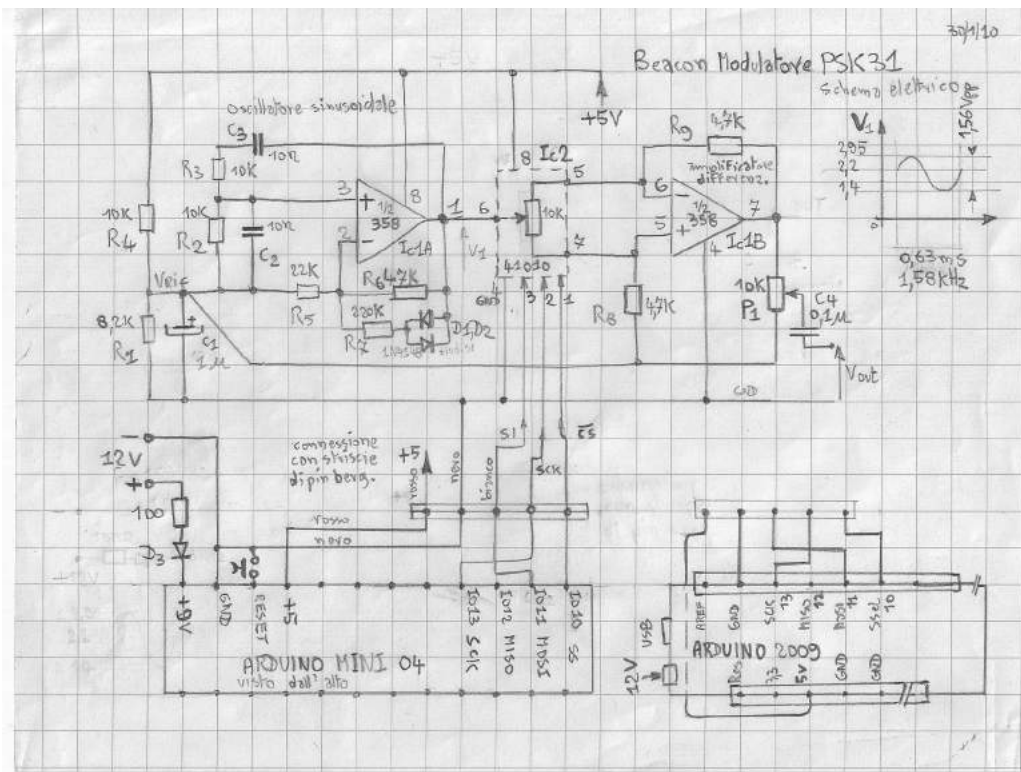 30/1/10
Beacon Modulatore PSK31
schema elettrico
oscillatore sinusoidale
+5V
C3
10n
R3
10K
10K
R4
10K
R2
10n
C2
3
+
1/2
358
8
1
2
-
Ic1A
V1
Vrif
22K
R5
R6 47K
220K
R7
D1,D2
1N4148
8,2K
R1
C1
1µ
8
Ic2
5
6
10K
7
41010
4
GND
3
2
1
R9
4,7K
amplificatore
differenz.
6
-
1/2
358
7
5
+
4
Ic1B
R8
4,7K
10K
P1
C4
0,1µ
Vout
GND
V1
2,95
2,2
1,4
0
1,56Vpp
0,63ms
1,58KHz
-
12V
+
100
D3
connessione
con striscie
di pin berg.
+5
rosso
nero
bianco
SI
SCK
CS
rosso
nero
+9V
GND
RESET
+5
IO13 SCK
IO12 MISO
IO11 MOSI
IO10 SS
ARDUINO MINI 04
visto dall'alto
AREF
GND
SCK 13
MISO 12
MOSI 11
SSel 10
USB
12V
ARDUINO 2009
Res
3,3
5V
GND
GND